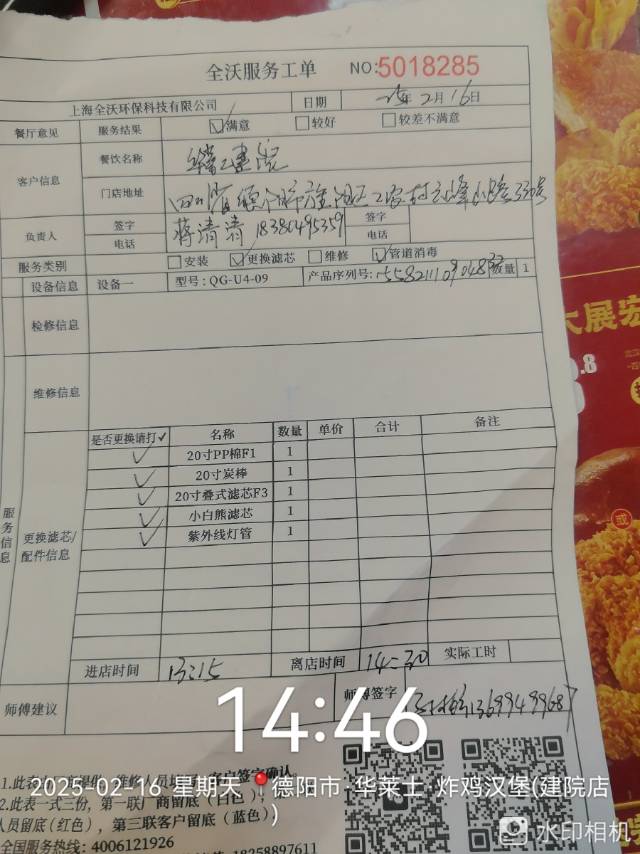 全沃服务工单 NO:5018285
上海全沃环保科技有限公司 日期 25年2月16日
餐厅意见 服务结果 ☑满意 □较好 □较差不满意
客户信息 餐饮名称
门店地址 四川省德阳市旌阳区 330号
负责人 签字 蒋清清 签字
电话 18380495359 电话
服务类别 □安装 ☑更换滤芯 □维修 ☑管道消毒
设备信息 设备一 型号:QG-U4-09 产品序列号: 数量 1
检修信息
维修信息
服务信息
更换滤芯/配件信息
是否更换请打✓ 名称 数量 单价 合计 备注
✓ 20寸PP棉F1 1
✓ 20寸炭棒 1
✓ 20寸叠式滤芯F3 1
✓ 小白熊滤芯 1
✓ 紫外线灯管 1
进店时间 13:15 离店时间 14:30 实际工时
师傅建议 师傅签字
14:46
客户签字确认
2025-02-16 星期天 德阳市·华莱士·炸鸡汉堡(建院店)
2.此表一式三份，第一联厂商留底(白色)，第二联
人员留底(红色)，第三联客户留底(蓝色)
全国服务热线: 4006121926
18258897611
水印相机
大展宏
.8
或